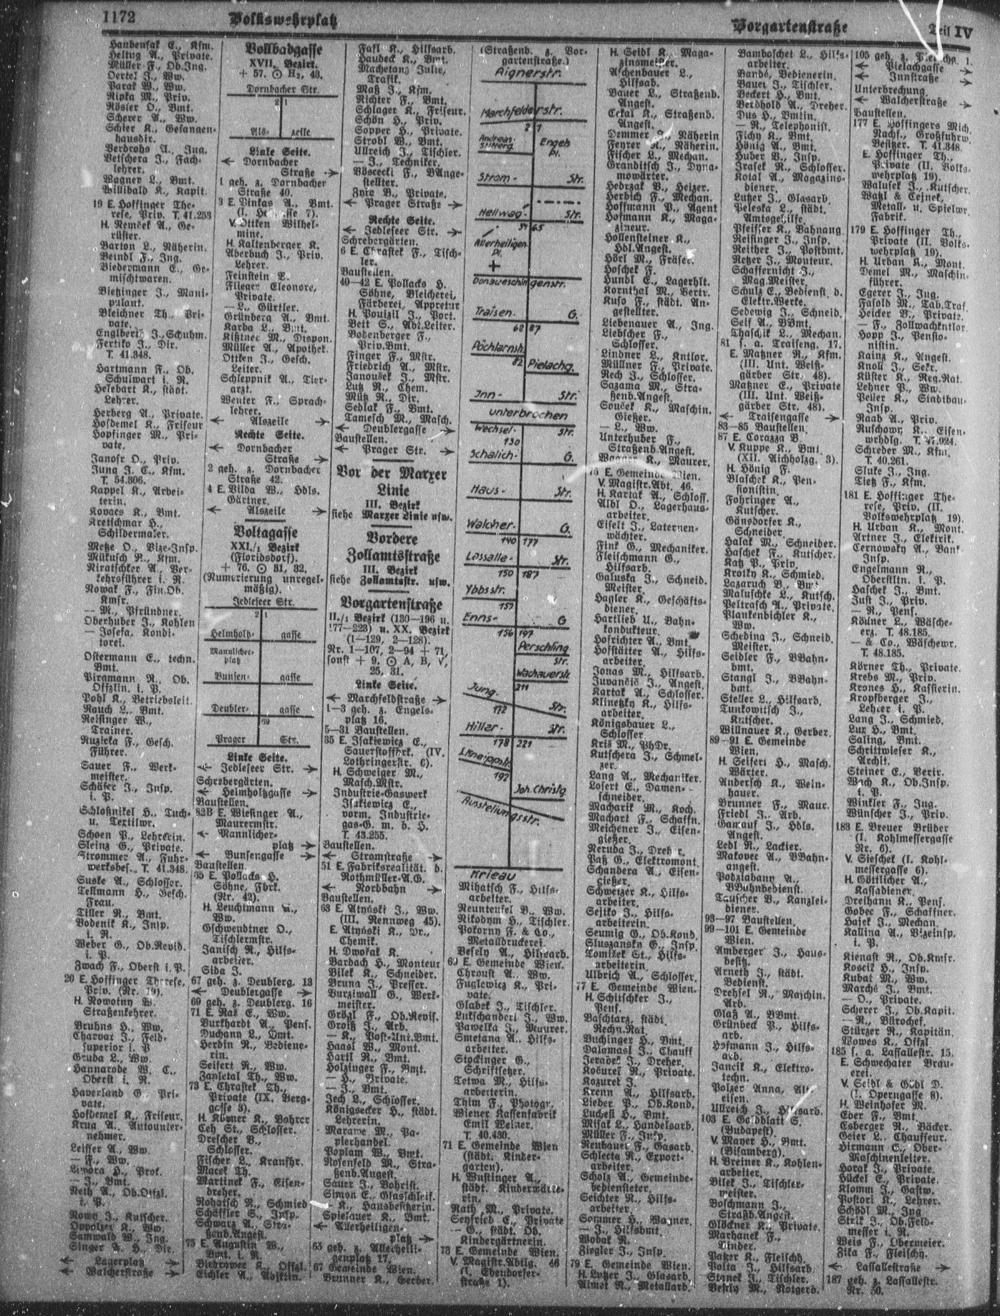 1172
Volkswehrplatz
Vorgartenstraße
Teil IV
Haubensak E., Kfm.
Helling A., Private.
Müller F., Ob.Ing.
Oertel J., Ww.
Parak W., Ww.
Ripka M., Priv.
Rösler O., Bmt.
Scherer A., Ww.
Schier K., Gefangen-
hausdir.
Verdroß A., Ing.
Vetschera J., Fach-
lehrer.
Wagner L., Bmt.
Willibald K., Kapit.
19 E. Hoffinger The-
rese, Priv. T. 41.253
H. Nemček A., Ge-
rüster.
Barton L., Näherin.
Beindl F., Ing.
Biedermann E., Ge-
mischtwaren.
Bietzinger J., Mani-
pulant.
Bleichner Th., Pri-
vate.
Englberl J., Schuhm.
Fertiko J., Dir.
T. 41.348.
Hartmann F., Ob.
Schulwart i. R.
Helebart K., städt.
Lehrer.
Herberg A., Private.
Hosdemel K., Friseur
Hopfinger M., Pri-
vate.
Janosr O., Priv.
Jung J. C., Kfm.
T. 54.806.
Kappel K., Arbei-
terin.
Kovacs K., Bmt.
Kretschmar H.,
Schildermaler.
Metze O., Vize-Insp.
Mikusch R., Kfm.
Niratschker A., Ver-
kehrsführer i. R.
Nowak F., Fin.Ob.
Kmsr.
— M., Pfründner.
Oberhuber J., Kohlen
— Josefa, Kondi-
torei.
Ostermann E., techn.
Bmt.
Piramann R., Ob.
Offzlin. i. P.
Pohl K., Betriebsleit.
Rauch L., Bmt.
Reisinger W.,
Trainer.
Ruzicka F., Gesch.
Führer.
Sauer F., Werk-
meister.
Schäfer J., Insp.
i. P.
Schloßnikel H., Tuch-
u. Textilwr.
Schoen P., Lehrerin.
Sleinz G., Private.
Strommer A., Fuhr-
werksbes., T. 41.348.
Suske A., Schlosser.
Tellmann H., Gesch.
Frau.
Tiller R., Bmt.
Vodenik K., Insp.
i. R.
Weber G., Ob.Revid.
i. P.
Zwach F., Oberst i. P.
20 E. Hoffinger Therese,
Priv. (Nr. 19).
H. Nowotny W.,
Straßenkehrer.
Bruhns H., Ww.
Charvar J., Feld-
superior i. P.
Gruda L., Ww.
Hannarode W. C.,
Oberst i. R.
Haverland G., Pri-
vate.
Hosdemel K., Friseur.
Krug A., Autounter-
nehmer.
Leisser A., Ww.
— F., Ww.
Limora H., Prof.
— J., Bmt.
Reth A., Ob.Offzl.
i. P.
Nowo J., Kutscher.
Opvolzer K., Ww.
Samwald W., Ing.
Singer A. H., Dir.
← Lagerplatz →
← Walcherstraße →
Vollbadgasse
XVII. Bezirk.
+ 57. ⊙ H₂, 43.
Dornbacher Str.
2 1
Als- zeile
Linke Seite.
← Dornbacher
Straße →
1 geh. z. Dornbacher
Straße 40.
3 E. Pinkas A., Bmt.
V. Otten Wilhel-
mine.
H. Kaltenberger K.
Aberbuch J., Priv.
Lehrer.
Feinstein E.
Flieger Eleonore,
Private.
— L., Gürtler.
Grünberg A., Bmt.
Karba L., Bmt.
Kißinec M., Dispon.
Müller A., Apothek.
Otten J., Gesch.
Leiter.
Schleppnik A., Tier-
arzt.
Wenter F., Sprach-
lehrer.
← Alszeile →
Rechte Seite.
← Dornbacher
Straße →
2 geh. z. Dornbacher
Straße 42.
4 E. Vilda W., Hdls.
Gärtner.
← Alszeile →
Voltagasse
XXI./₁ Bezirk
(Floridsdorf).
+ 76. ⊙ 31, 32.
(Numerierung unregel-
mäßig).
Jedleseer Str.
2 1
Helmholtz- gasse
Mannlicher-
platz
Bunsen- gasse
Deubler- gasse
79
Prager Str.
Linke Seite.
← Jedleseer Str. →
Schrebergärten.
← Helmholtzgasse →
Baustellen.
83B E. Wiesinger A.,
Maurermstr.
← Mannlicher-
platz →
← Bunsengasse →
Baustellen.
65 E. Pollacks H.
Söhne, Fbrk.
(Nr. 42).
H. Leuchtmann A.,
Ww.
Gschwendtner O.,
Tischlermstr.
Janisch R., Hilfs-
arbeiter.
Siba J.
67 geh. z. Deublerg. 13
← Deublergasse →
69 geh. z. Deublerg. 16
71 E. Raß E., Ww.
Burkhardt A., Pens.
Duchann L., Bmt.
Herdin R., Bediene-
rin.
Seifert R., Ww.
Zanletal Th., Ww.
73 E. Chrastek Th.,
Private (IX. Berg-
gasse 3).
H. Körner K., Bohrer
Ceh St., Schlosser.
Drescher B.,
Schlosser.
Fischer L., Kransfhr.
Marek Th.
Martinek F., Eisen-
dreher.
Rohatsch R., Schmied
Schäffler S., Insp.
Schwarz A., Stra-
ßenb.Angest.
75 E. Augustin W.,
Bmt. i. R.
Eichler A., Adjktin.
Fakl K., Hilfsarb.
Haudek K., Bmt.
Machetanz Julie,
Trafik.
Maß J., Kfm.
Richter F., Bmt.
Schlager K., Friseur.
Schön H., Priv.
Sopper H., Private.
Strobl W., Bmt.
Ullreich J., Tischler.
— J., Techniker.
Böscecki F., B'Ange-
stellter.
Zyla B., Private.
← Prager Straße →
Rechte Seite.
← Jedleseer Str. →
Schrebergärten.
6 E. Chrastek F., Tisch-
ler.
Baustellen.
40—42 E. Pollacks H.
Söhne, Bleicherei,
Färberei, Appretur
H. Pouizil J., Port.
Bett S., Abt.Leiter.
Bodenberger F.,
Priv.Bmt.
Finger F., Mstr.
Friedrich A., Mstr.
Janoušek J., Mstr.
Lutz R., Chem.
Mütz R., Dir.
Sedlak F., Bmt.
Tanesch M., Masch.
← Deublergasse →
Baustellen.
← Prager Str. →
Vor der Marxer
Linie
III. Bezirk
siehe Marxer Linie usw.
Vordere
Zollamtsstraße
III. Bezirk
siehe Zollamtsstr. usw.
Vorgartenstraße
II./₁ Bezirk (130—196 u.
177—223) u. XX. Bezirk
(1—129, 2—128).
Nr. 1—107, 2—94 + 71,
sonst + 9. ⊙ A, B, V,
25, 31.
Linke Seite.
← Marchfeldstraße →
1—3 geh. z. Engels-
platz 16.
5—31 Baustellen.
35 E. Isakiewicz E.,
Sauerstoffrk. (IV.
Lothringerstr. 6).
H. Schweiger M.,
Masch.Mstr.
Industrie-Gaswerk
Isakiewicz E.,
vorm. Industrie-
gas-G. m. b. H.
T. 43.255.
Baustellen.
← Stromstraße →
51 E. Fabriksrealität b.
Rothmüller-A.G.
← Nordbahn →
Baustellen.
63 E. Atynski J., Ww.
(III. Rennweg 45).
E. Atynski K., Dr.,
Chemik.
H. Dwořak K.
Barbach H., Monteur
Bilek K., Schneider.
Bruna J., Presser.
Burzival G., Werk-
meister.
Grögl F., Ob.Revis.
Groiß J., Arb.
— K., Post-Unt.Bmt.
Haas W., Mont.
Hartl R., Bmt.
Holzinger F., Bmt.
— H., Private.
— J., Bmt.
Jech L., Schlosser.
Königsecker H., städt.
Lehrerin.
Marame M., Pa-
pierhandel.
Poplam W., Bmt.
Rosenfeld M., Stra-
ßenb.Angest.
Sauer J., Vohrist.
Simon E., Glasschleif.
— K., Hausbesitzerin.
Spielauer K., Bmt.
← Allerheiligen-
platz →
65 geh. z. Allerheili-
genplatz 17.
67 Gemeinde Wien.
Brunner K., Gerber.
(Straßenb. z. Vor-
gartenstraße.)
Aignerstr.
Marchfelderstr.
2 1
Engels
Pl.
Strom- Str.
Hellwag- Str.
51 65
Allerheiligen-
Pl.
+
Donaueschingenstr.
Traisen- G.
68 87
Pöchlarnstr.
82 Pielachg.
Inn- Str.
unterbrochen
Wechsel- Str.
130
Schalich- G.
Haus- Str.
Walcher- G.
140 177
Lassalle- Str.
150 187
Ybbsstr.
157
Enns- G
156 197
Perschling
Str.
Wachauerstr
Jung- 211
172 Str.
Hiller- Str.
178 221
S. Kneipppl.
197
Joh. Christg.
Ausstellungsstr.
Krieau
Mihatsch F., Hilfs-
arbeiter.
Neunteufel B., Ww.
Nikodym H., Tischler.
Pokorny F. & Co.,
Metalldruckerei.
Besely A., Hilfsarb.
69 E. Gemeinde Wien.
Chroust A., Ww.
Fuglewicz K., Pri-
vate.
Glabek J., Tischler.
Lukschanderl J., Ww.
Pawelka J., Maurer.
Smetana A., Hilfs-
arbeiter.
Stockinger G.,
Schriftsetzer.
Tetwa M., Hilfs-
arbeiterin.
Thim F., Photogr.
Wiener Kassenfabrik
Emil Welner.
T. 40.430.
71 E. Gemeinde Wien
(städt. Kinder-
garten).
H. Wustinger A.,
städt. Kinderwärte-
rin.
Rath M., Private.
Senfried E., Private
— G., städt. Ob.
Kindergärtnerin.
73 E. Gemeinde Wien.
V. Magistr.Abtlg. 46
(I. Ebendorfer-
straße 1).
H. Seidl K., Maga-
zinsmeister.
Aschenbauer L.,
Hilfsarb.
Bauer L., Straßenb.
Angest.
Čekal K., Straßenb.
Angest.
Demmer , Näherin
Feyrer A., Näherin.
Fischer L., Mechan.
Granditsch J., Dyna-
mowärter.
Hedrzak B., Heizer.
Herdich F., Mechan.
Hoffmann P., Agent
Hofmann K., Maga-
zineur.
Hollensteiner K.,
Hdl.Angest.
Hörl M., Fräser.
Hoschek F.
Hundl E., Lagerhlt.
Kornthal M., Vertr.
Kuso F., städt. An-
gestellter.
Liebenauer A., Ing.
Liebscher F.,
Schlosser.
Lindner L., Kntlor.
Müllner F., Private.
Rech J., Schlosser.
Sazama M., Stra-
ßenb.Angest.
Souček K., Maschin.
Gießer.
— L., Ww.
Unterhuber F.,
Straßenb.Angest.
Wagner K., Maurer.
75 E. Gemeinde Wien.
V. Magistr.Abt. 46.
H. Kariak A., Schloss.
Albl O., Lagerhaus-
arbeiter.
Eifelt J., Laternen-
wächter.
Fink G., Mechaniker.
Fleischmann G.,
Hilfsarb.
Galuska J., Schneid.
Meister.
Hagler K., Geschäfts-
diener.
Hartlieb U., Bahn-
kondukteur.
Hofrichter A., Bmt.
Hofstätter A., Hilfs-
arbeiter.
Jonas M., Hilfsarb.
Juvančič J., Angest.
Kartak A., Schlosser.
Klinetzky K., Hilfs-
arbeiter.
Königsbauer L.,
Schlosser
Kris M., PhDr.
Kutschera J., Schmel-
zer.
Lang A., Mechaniker.
Losert E., Damen-
schneider.
Macharik M., Koch.
Machart F., Schaffn.
Meichener J., Eisen-
gießer.
Neruda J., Dreher.
Patz G., Elektromont.
Schandera A., Eisen-
gießer.
Schwerzer K., Hilfs-
arbeiter.
Sejiko J., Hilfs-
arbeiterin.
Seunig G., Ob.Kond.
Sluszansky G., Insp.
Tomitek St., Hilfs-
arbeiterin.
Ulbrich A., Schlosser.
77 E. Gemeinde Wien.
H. Schtischker J.,
Pens.
Baschtarz, städt.
Rechn.Rat.
Buchinger H., Bmt.
Dalomasl J., Chauff
Jerabek J., Dreher.
Kočurek R., Private.
Kozurek J.
Krenn A., Hilfsarb.
Lieber P., Ob.Kond.
Luchesi H., Bmt.
Misal L., Handelsarb.
Müller F., Insp.
Neubauer F., Gasarb.
Schlecta R., Export-
arbeiter.
Scholz A., Gemeinde-
bediensteter.
Seichter R., Hilfs-
arbeiter.
Sommer H., Wagner.
— J., Hilfsbmt.
Woboř K.
Ziegler J., Insp.
79 E. Gemeinde Wien.
H. Luxer J., Glasarb.
Almet R., Metallarb.
Bambaschet L., Hilfs-
arbeiter.
Barbò, Bedienerin.
Bauer J., Tischler.
Beckert H., Bmt.
Berdhold A., Dreher.
Dus H., Bmtin.
— R., Telephonist.
Fichy K., Bmt.
Hönig A., Bmt.
Huber V., Insp.
Jraček R., Schlosser.
Kolal A., Magazins-
diener.
Luker J., Glasarb.
Peleska L., städt.
Amtsgehilfe.
Pfeiffer K., Bahnang.
Reisinger J., Insp.
Reither J., Postbmt.
Retzer J., Monteur.
Schaffernicht J.,
Mag.Meister.
Schulz E., Bedienst. d.
Elektr.Werke.
Sedewig J., Schneid.
Self A., BBmt.
Thaschik L., Mechan.
81 s. a. Traiseng. 17.
E. Matzner R., Kfm.
(III. Unt. Weiß-
gärber Str. 48).
Matzner E., Private
(III. Unt. Weiß-
gärber Str. 48).
← Traisengasse →
83—85 Baustellen.
87 E. Corazza B.
V. Kuppe K., Bmt.
(XII. Aichholzg. 3).
H. Hönig F.
Blaschek K., Pen-
sionistin.
Fohringer A.,
Kutscher.
Gänsdorfer K.,
Schneider.
Halak M., Schneider.
Haschek F., Kutscher.
Katz P., Priv.
Kroiky K., Schmied.
Lazaruch B., Bmt.
Maluschke L., Kutsch.
Peltrasch A., Private.
Plankenbichler K.,
Ww.
Schedina J., Schneid.
Meister.
Seidler F., BBahn-
bmt.
Stangl J., BBahn-
bmt.
Steller L., Hilfsarb.
Tunkowitsch J.,
Kutscher.
Willnauer K., Gerber.
89—91 E. Gemeinde
Wien.
H. Seifert H., Masch.
Wärter.
Andersch K., Wein-
hauer.
Brunner F., Maur.
Friedl J., Arb.
Gamauf J., Hdls.
Angest.
Ledl R., Lackier.
Makovec A., BBahn-
angest.
Podzlabanny A.,
BBahnbedienst.
Tauscher B., Kanzlei-
diener.
93—97 Baustellen.
99—101 E. Gemeinde
Wien.
Amberger J., Haus-
besitz.
Arneth J., städt.
Bedienst.
Drehsel R., Maschin.
Arb.
Glaß A., BBmt.
Grünbeck P., Hilfs-
arb.
Hofmann J., Hilfs-
arb.
Jancik K., Elektro-
techn.
Polzer Anna, Alt-
eisen.
Ullreich J., Hilfsarb.
103 E. Goldblatt S.
(Budapest)
V. Mayer H., Bmt.
(Bisamberg).
H. Breiner K., Kohlen-
arbeiter.
Bilek J., Tischler-
meister.
Boschmann J.,
Straßb.Angest.
Glöckner K., Private.
Marhanek F.,
Binder.
Patzer K., Fleischh.
Polta J., Hilfsarb.
Stanek J., Tischler.
Vesely M., Notgerb.
105 geh. z. Pielachg. 1.
← Pielachgasse →
← Innstraße →
Unterbrechung.
← Walcherstraße →
Baustellen.
177 E. Hoffingers Mich.
Nachf., Großfuhrw.
Besitzer. T. 41.348.
E. Hoffinger Th.,
Private (II. Volks-
wehrplatz 19).
Waluset J., Kutscher.
Wahl & Čejnek,
Metall- u. Spielwr.
Fabrik.
179 E. Hoffinger Th.,
Private (II. Volks-
wehrplatz 19).
H. Urban K., Mont.
Demel M., Maschin.
führer.
Egerer J., Ing.
Fasold M., Tab.Traf
Hescher J., Private.
— F., Zollwachktlor.
Hopp J., Pensio-
nistin.
Kainz K., Angest.
Knoll J., Sekr.
Küster K., Reg.Rat.
Lehner P., Ww.
Peller K., Stadtbau-
Insp.
Raab A., Priv.
Ruschowy K., Eisen-
wrhdlg. T. 47.924.
Schreder M., Kfm.
T. 40.261.
Sluke J., Ing.
Tietz F., Kfm.
181 E. Hoffinger The-
rese, Priv. (II.
Volkswehrplatz 19).
H. Urban K., Mont.
Artner J., Elektrik.
Cernowsky A., Bank-
Insp.
Engelmann R.,
Oberstltn. i. P.
Haschek J., Bmt.
Just J., Priv.
— R., Pens.
Kölner L., Wäsche-
erz. T. 48.185.
— & Co., Wäschewr.
T. 48.185.
Körner Th., Private.
Krebs M., Priv.
Krones H., Kassierin.
Kropfberger J.,
Lehrer i. P.
Lang J., Schmied.
Lux H., Bmt.
Saling, Bmt.
Schrittwieser K.,
Archit.
Steiner E., Vertr.
Wick K., Ob.Insp.
i. P.
Winkler F., Ing.
Wünscher J., Priv.
183 E. Breuer Brüder
(I. Kohlmessergasse
Nr. 6).
V. Sieschek (I. Kohl-
messergasse 6).
H. Göttlicher A.,
Kassadiener.
Dreihann K., Pens.
Gobec F., Schaffner.
Hajek J., Mechan.
Kallina A., Vizeinsp.
i. P.
Kienast R., Ob.Kmsr.
Koseil H., Insp.
Kubat M., Ww.
Marchè J., Bmt.
— O., Private.
Scherer J., Ob.Kapit.
— R., Bürochef.
Stürzer K., Kapitän.
Wowes K., Offzl
185 s. a. Lassallestr. 15.
E. Schwechater Brau-
erei.
V. Seidl & Gödl D.
(I. Operngasse 8).
H. Weinhofer M.
Eber F., Bmt.
Esberger R., Bäcker.
Geier L., Chauffeur.
Hirmann C., Ober-
Maschinenleiter.
Horak J., Private.
Hückel E., Private.
Klomm J., Gastw.
Pastori K., Lehrer.
Schödl M., Ing
Strik J., Ob.Feld-
messer i. R.
Weis F., Obermeier.
Zika F., Fleischg.
← Lassallestraße →
187 geh. z. Lassallestr.
Nr. 50.